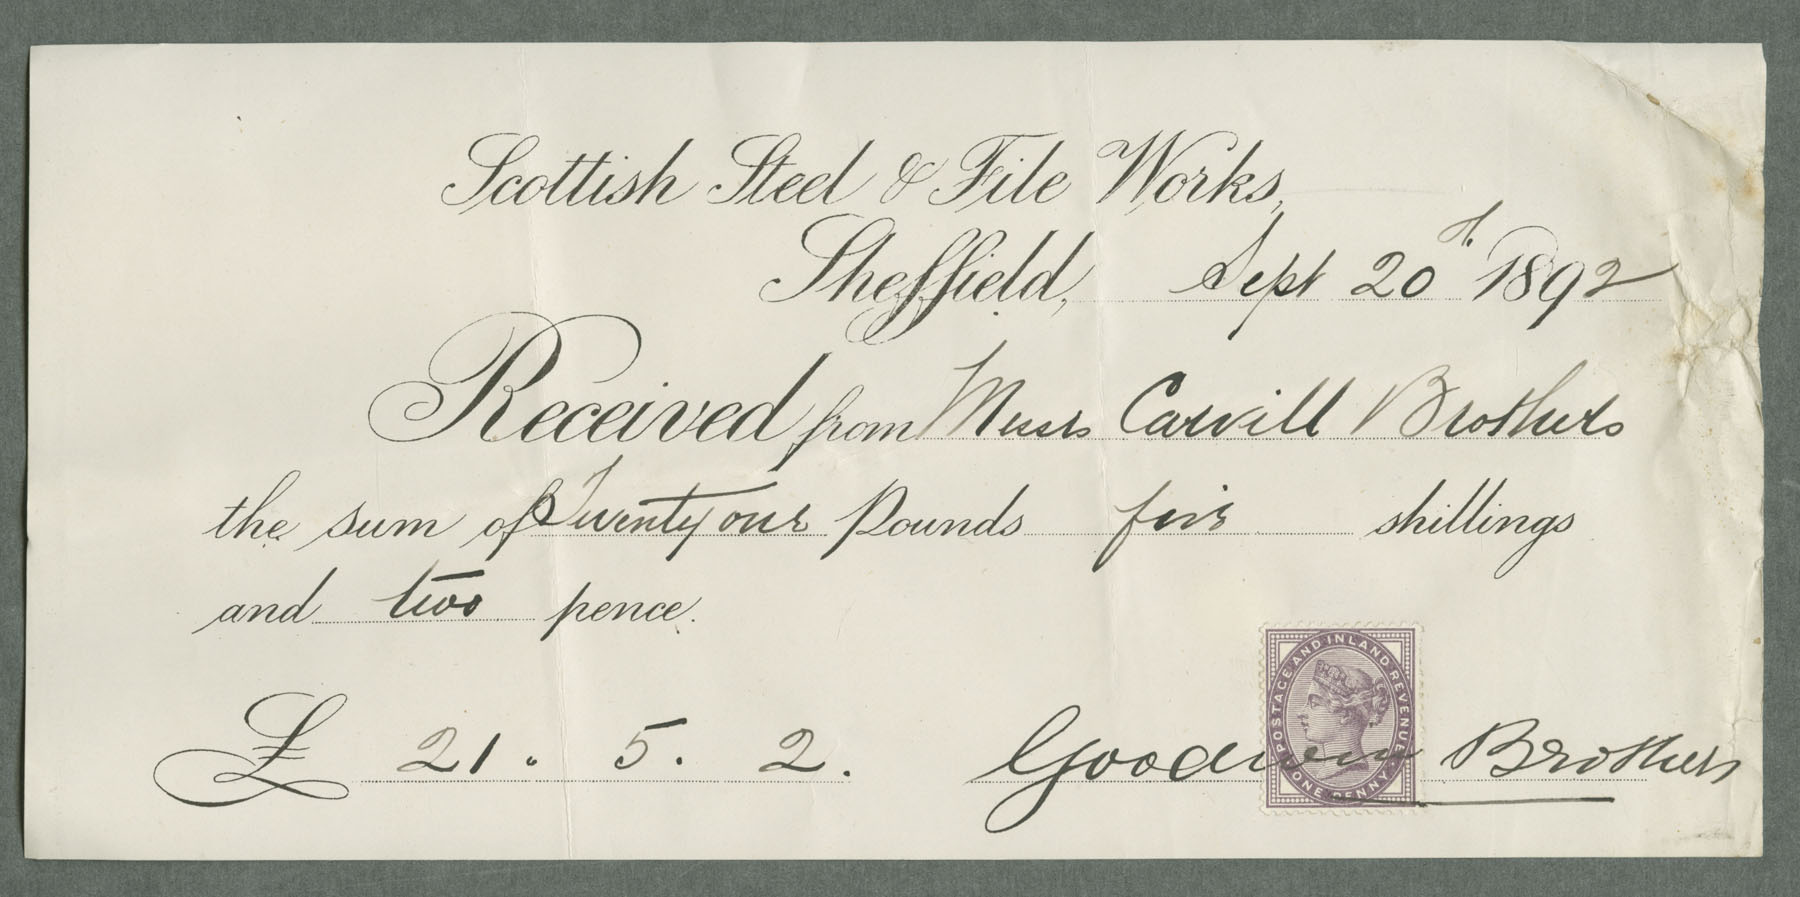 Scottish Steel & File Works,
Sheffield, Sept 20th 1892
Received from Messrs Carvill Brothers
the sum of Twenty one Pounds five shillings
and two pence.
£ 21. 5. 2.
Goodwin Brothers
POSTAGE AND INLAND REVENUE
ONE PENNY